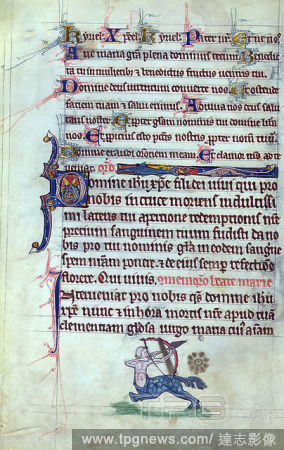 Kyriel. Xpel. Kyriel. Pater nr. Et ne nos.
Aue maria gra plena dominus tecum. Benedic
ta tu in mulieribus et benedictus fructus uentris tui.
Domine deus uirtutum conuerte nos. Et ostende
faciem tuam et salui erimus. Adiuua nos deus salu
taris noster. Et propter gloriam nominis tui domine libera
nos. Et propicius esto peccatis nostris propter nomen tuum.
Domine exaudi orationem meam. Et clamor meus ad te
ueniat. Oro
Domine ihu xpe fili dei uiui qui pro
nobis in cruce moriens
lateris tui apertione redemptionis nostre
precium sanguinem tuum fudisti da no
bis pro tui nominis gloria in eodem sanguine
spem nram ponere et de eius semper refectione
florere. Qui uiuis. memoria beate marie
Interueniat pro nobis qs domine ihu
xpe nunc et in hora mortis nre apud tuam
clementiam gloriosa uirgo maria cuius animam
TPG
www.tpgnews.com/ 達志影像